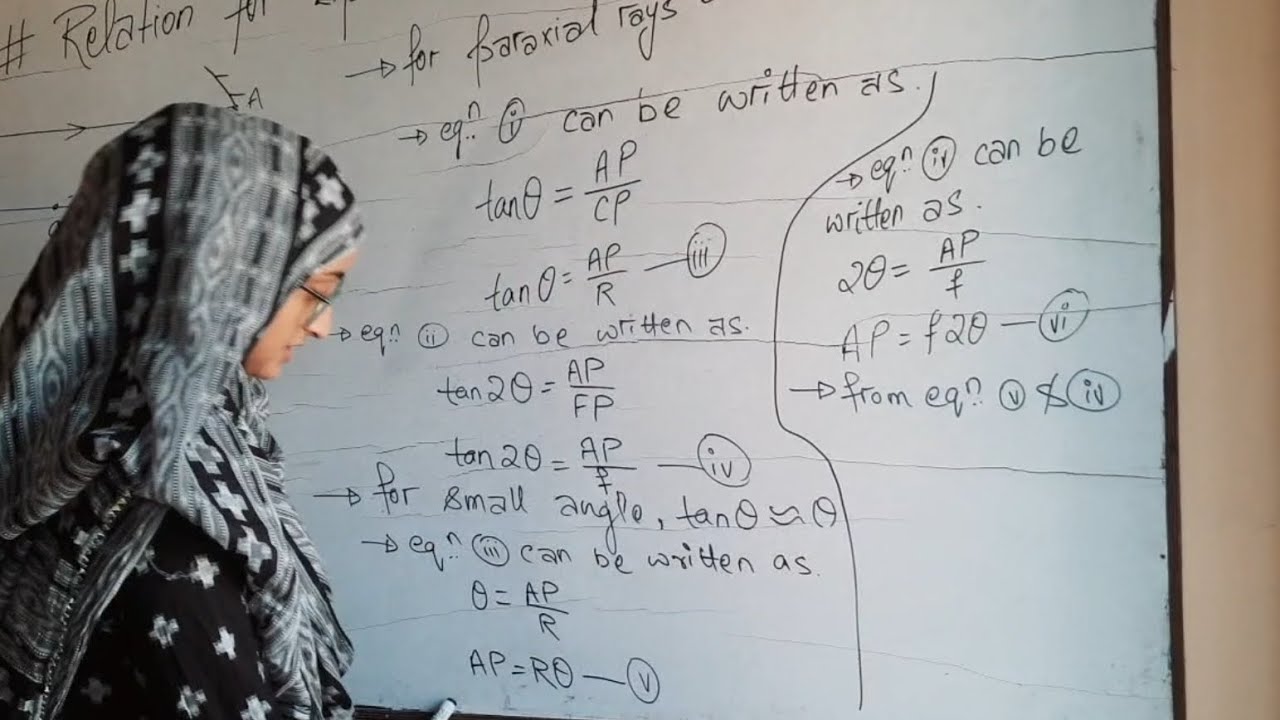 # Relation for
→ for paraxial rays
A
→ eqn. (i) can be written as.
tanθ = AP/CP
tanθ = AP/R — (iii)
→ eqn. (ii) can be written as.
tan2θ = AP/FP
tan2θ = AP/f — (iv)
→ for small angle, tanθ ≈ θ
→ eqn. (iii) can be written as.
θ = AP/R
AP = Rθ — (v)
→ eqn. (iv) can be
written as.
2θ = AP/f
AP = f2θ — (vi)
→ from eqn. (v) & (iv)